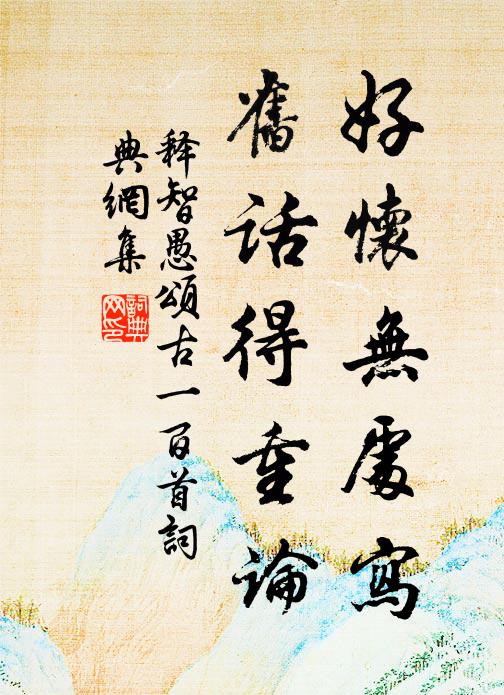 好懷無處寫
舊話得重論
释智愚頌古一百首詞
典網集
詞典網印